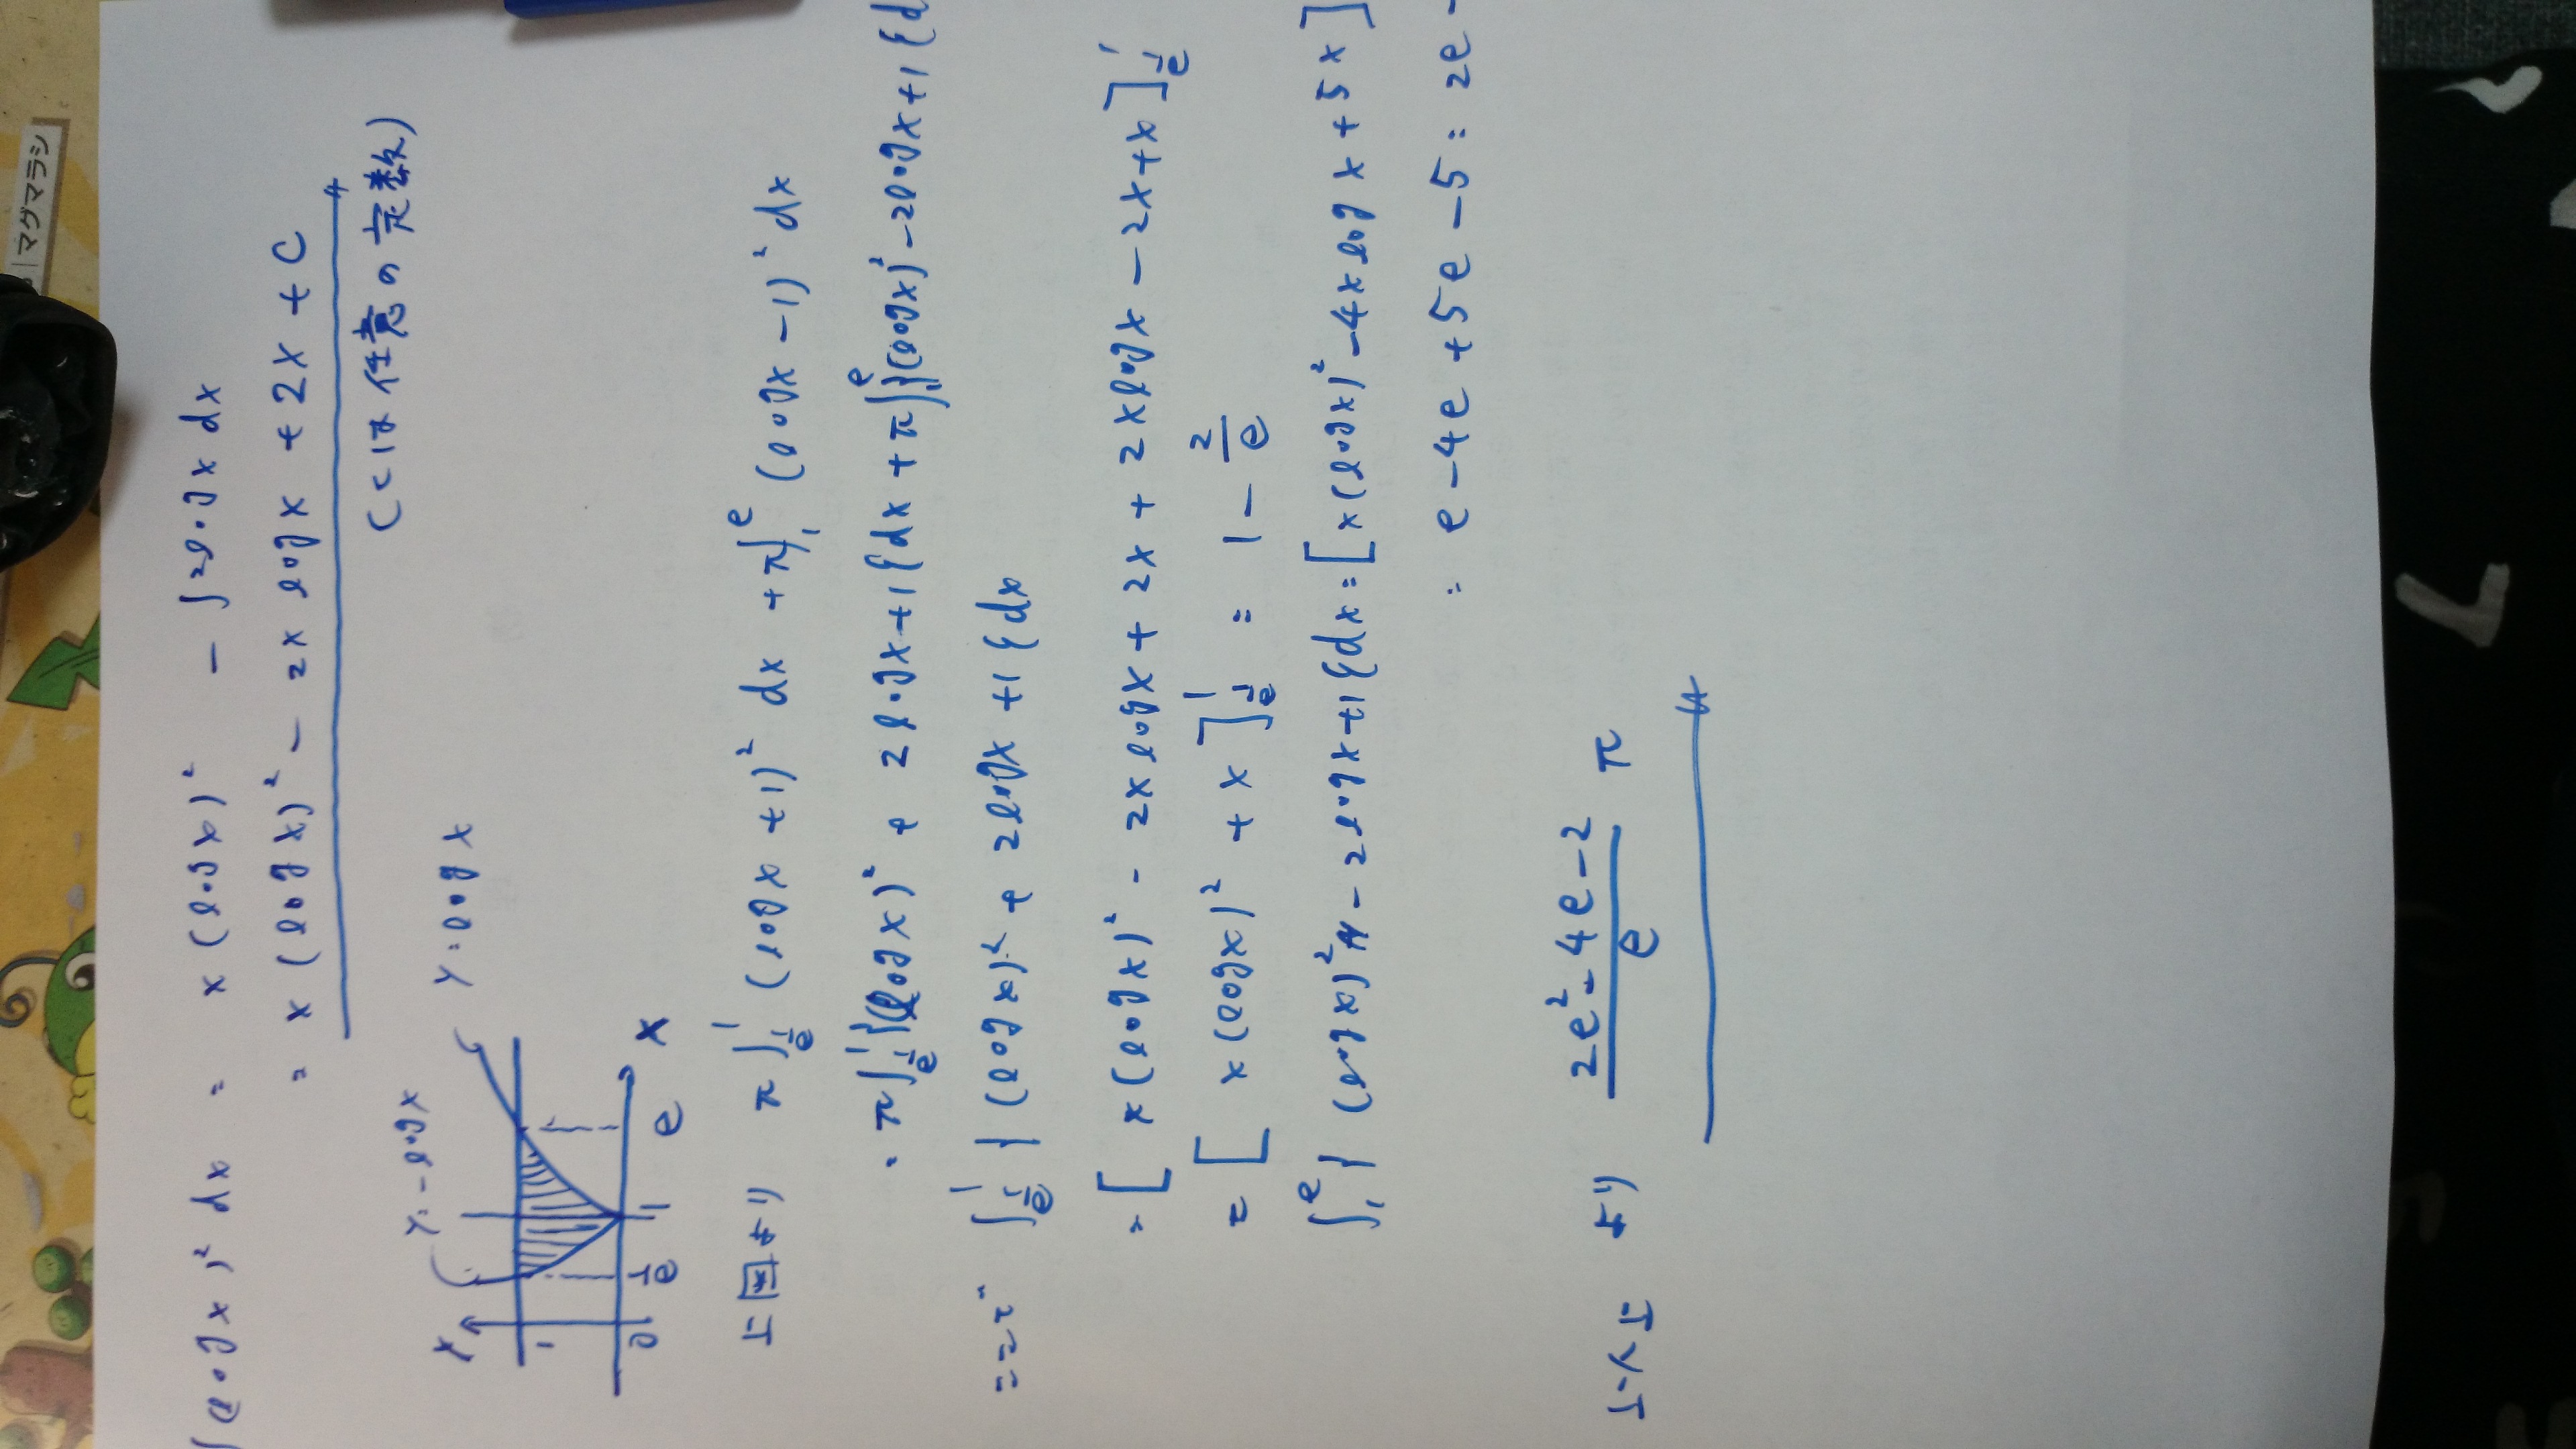 マグマラシ
∫(log x)² dx = x(log x)² − ∫2log x dx
= x(log x)² − 2x log x + 2x + C
(Cは任意の定数)
y=−log x
y=log x
y
1
0
1/e
1
e
x
上図より π∫_{1/e}^{1} (log x +1)² dx + π∫_{1}^{e} (log x −1)² dx
= π∫_{1/e}^{1} {(log x)² + 2log x+1} dx + π∫_{1}^{e} {(log x)²−2log x+1} d
ここで、 ∫_{1/e}^{1} {(log x)² + 2log x +1} dx
= [x(log x)² − 2x log x + 2x + 2x log x − 2x + x]_{1/e}^{1}
= [x(log x)² + x]_{1/e}^{1} = 1 − 2/e
∫_{1}^{e} {(log x)² − 2log x+1} dx = [x(log x)² −4x log x + 5x]
= e −4e +5e −5 = 2e −
以上より (2e² − 4e − 2)/e π